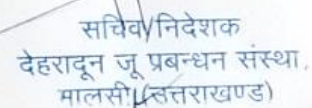 सचिव/निदेशक
देहरादून जू प्रबन्धन संस्था,
मालसी (उत्तराखण्ड)